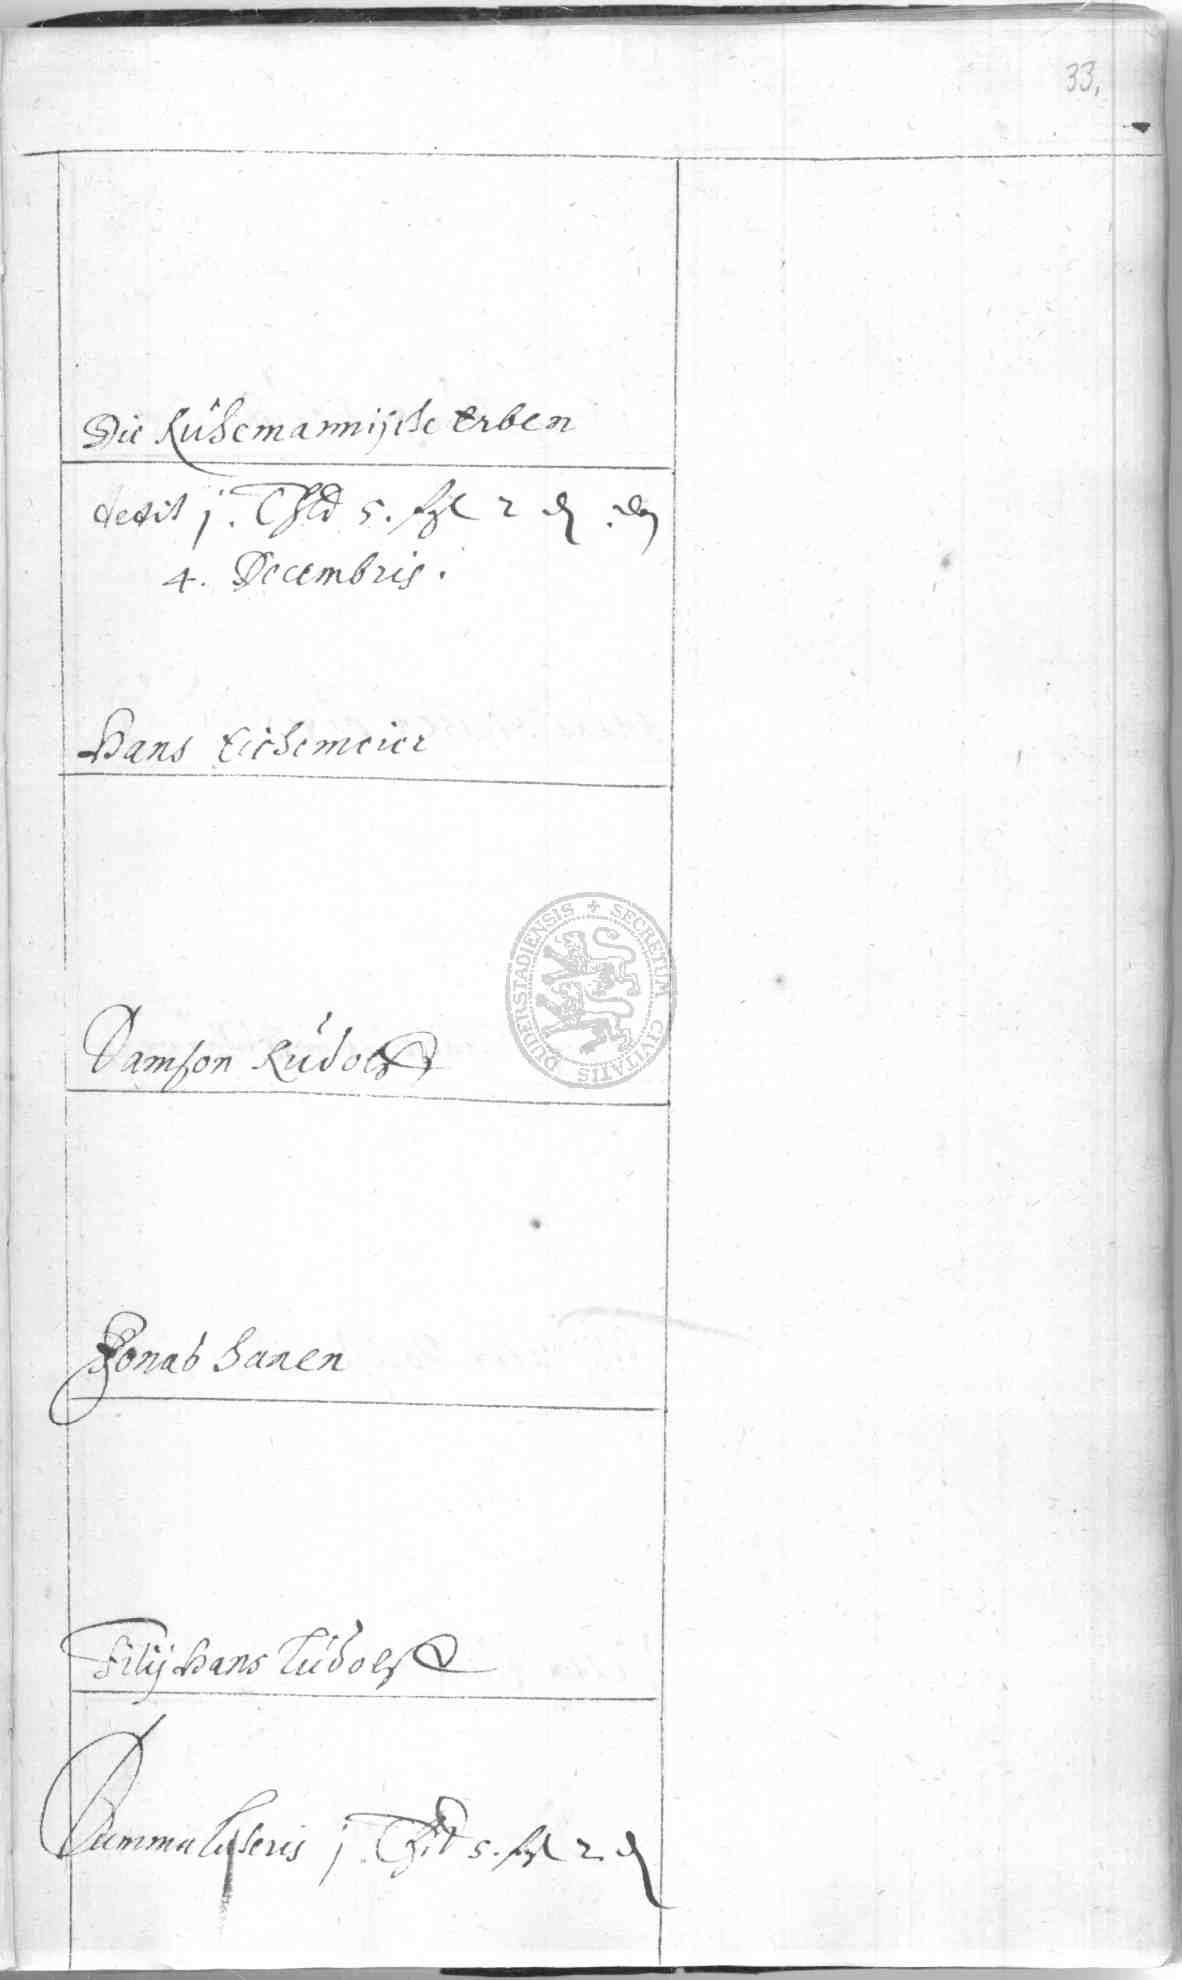 33,
Die Kühemannische Erben
dedit j. Thlr 5. ßgl 2 ₰ den
4. Decembris.
Hans Eichemeier
SECRETUM CIVITATIS DUDERSTADIENSIS
Samson Rudolff
Jonas Hanen
Filij Hans Rudolff
Summa lateris j. Thlr 5. ßgl 2. ₰